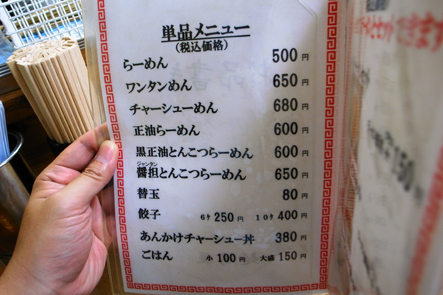 単品メニュー
(税込価格)
らーめん 500円
ワンタンめん 650円
チャーシューめん 680円
正油らーめん 600円
黒正油とんこつらーめん 600円
ジャンタン
醤担とんこつらーめん 650円
替玉 80円
餃子 6ヶ 250円 10ヶ 400円
あんかけチャーシュー丼 380円
ごはん 小 100円 大盛 150円